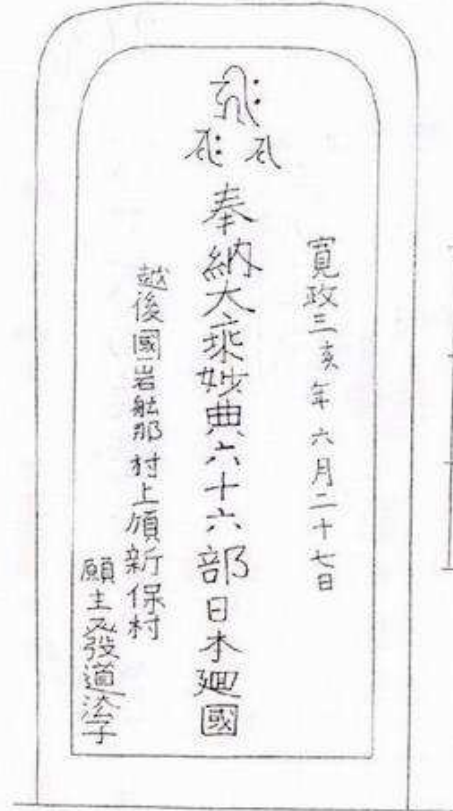 寛政三亥年六月二十七日
奉納大乗妙典六十六部日本廻國
越後國岩舩郡村上領新保村
願主 發道法子